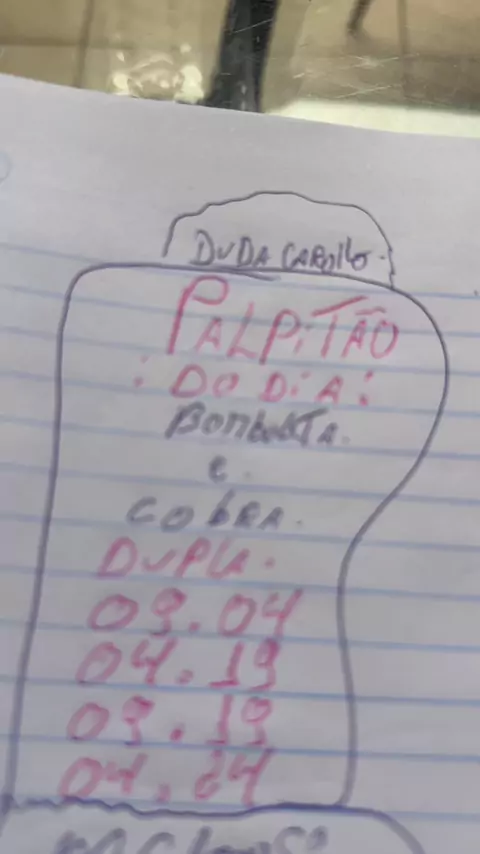 DUDA CAROLLO.
PALPiTÃO
: DO DiA :
BORBOLETA.
e.
COBRA.
DUPLA.
09.04
04.19
09.19
04.24